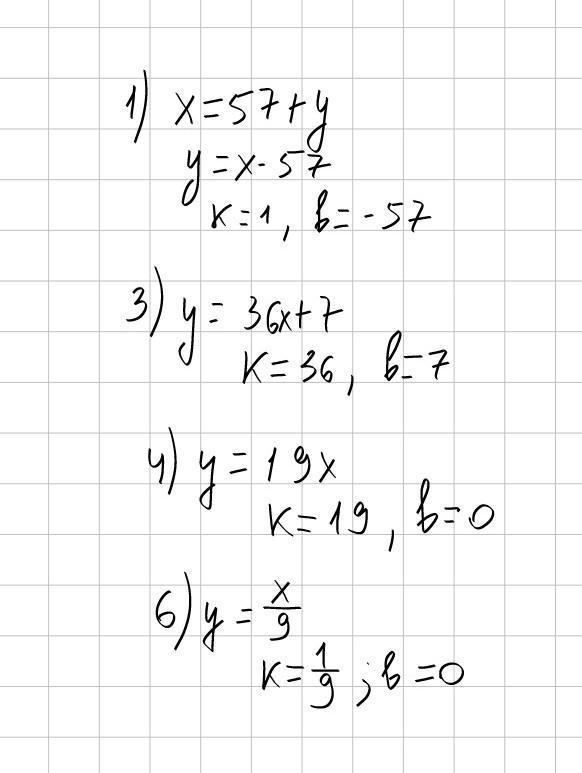 1) x=57+y
y=x-57
k=1, b=-57
3) y=36x+7
k=36, b=7
4) y=19x
k=19, b=0
6) y=x/9
k=1/9; b=0